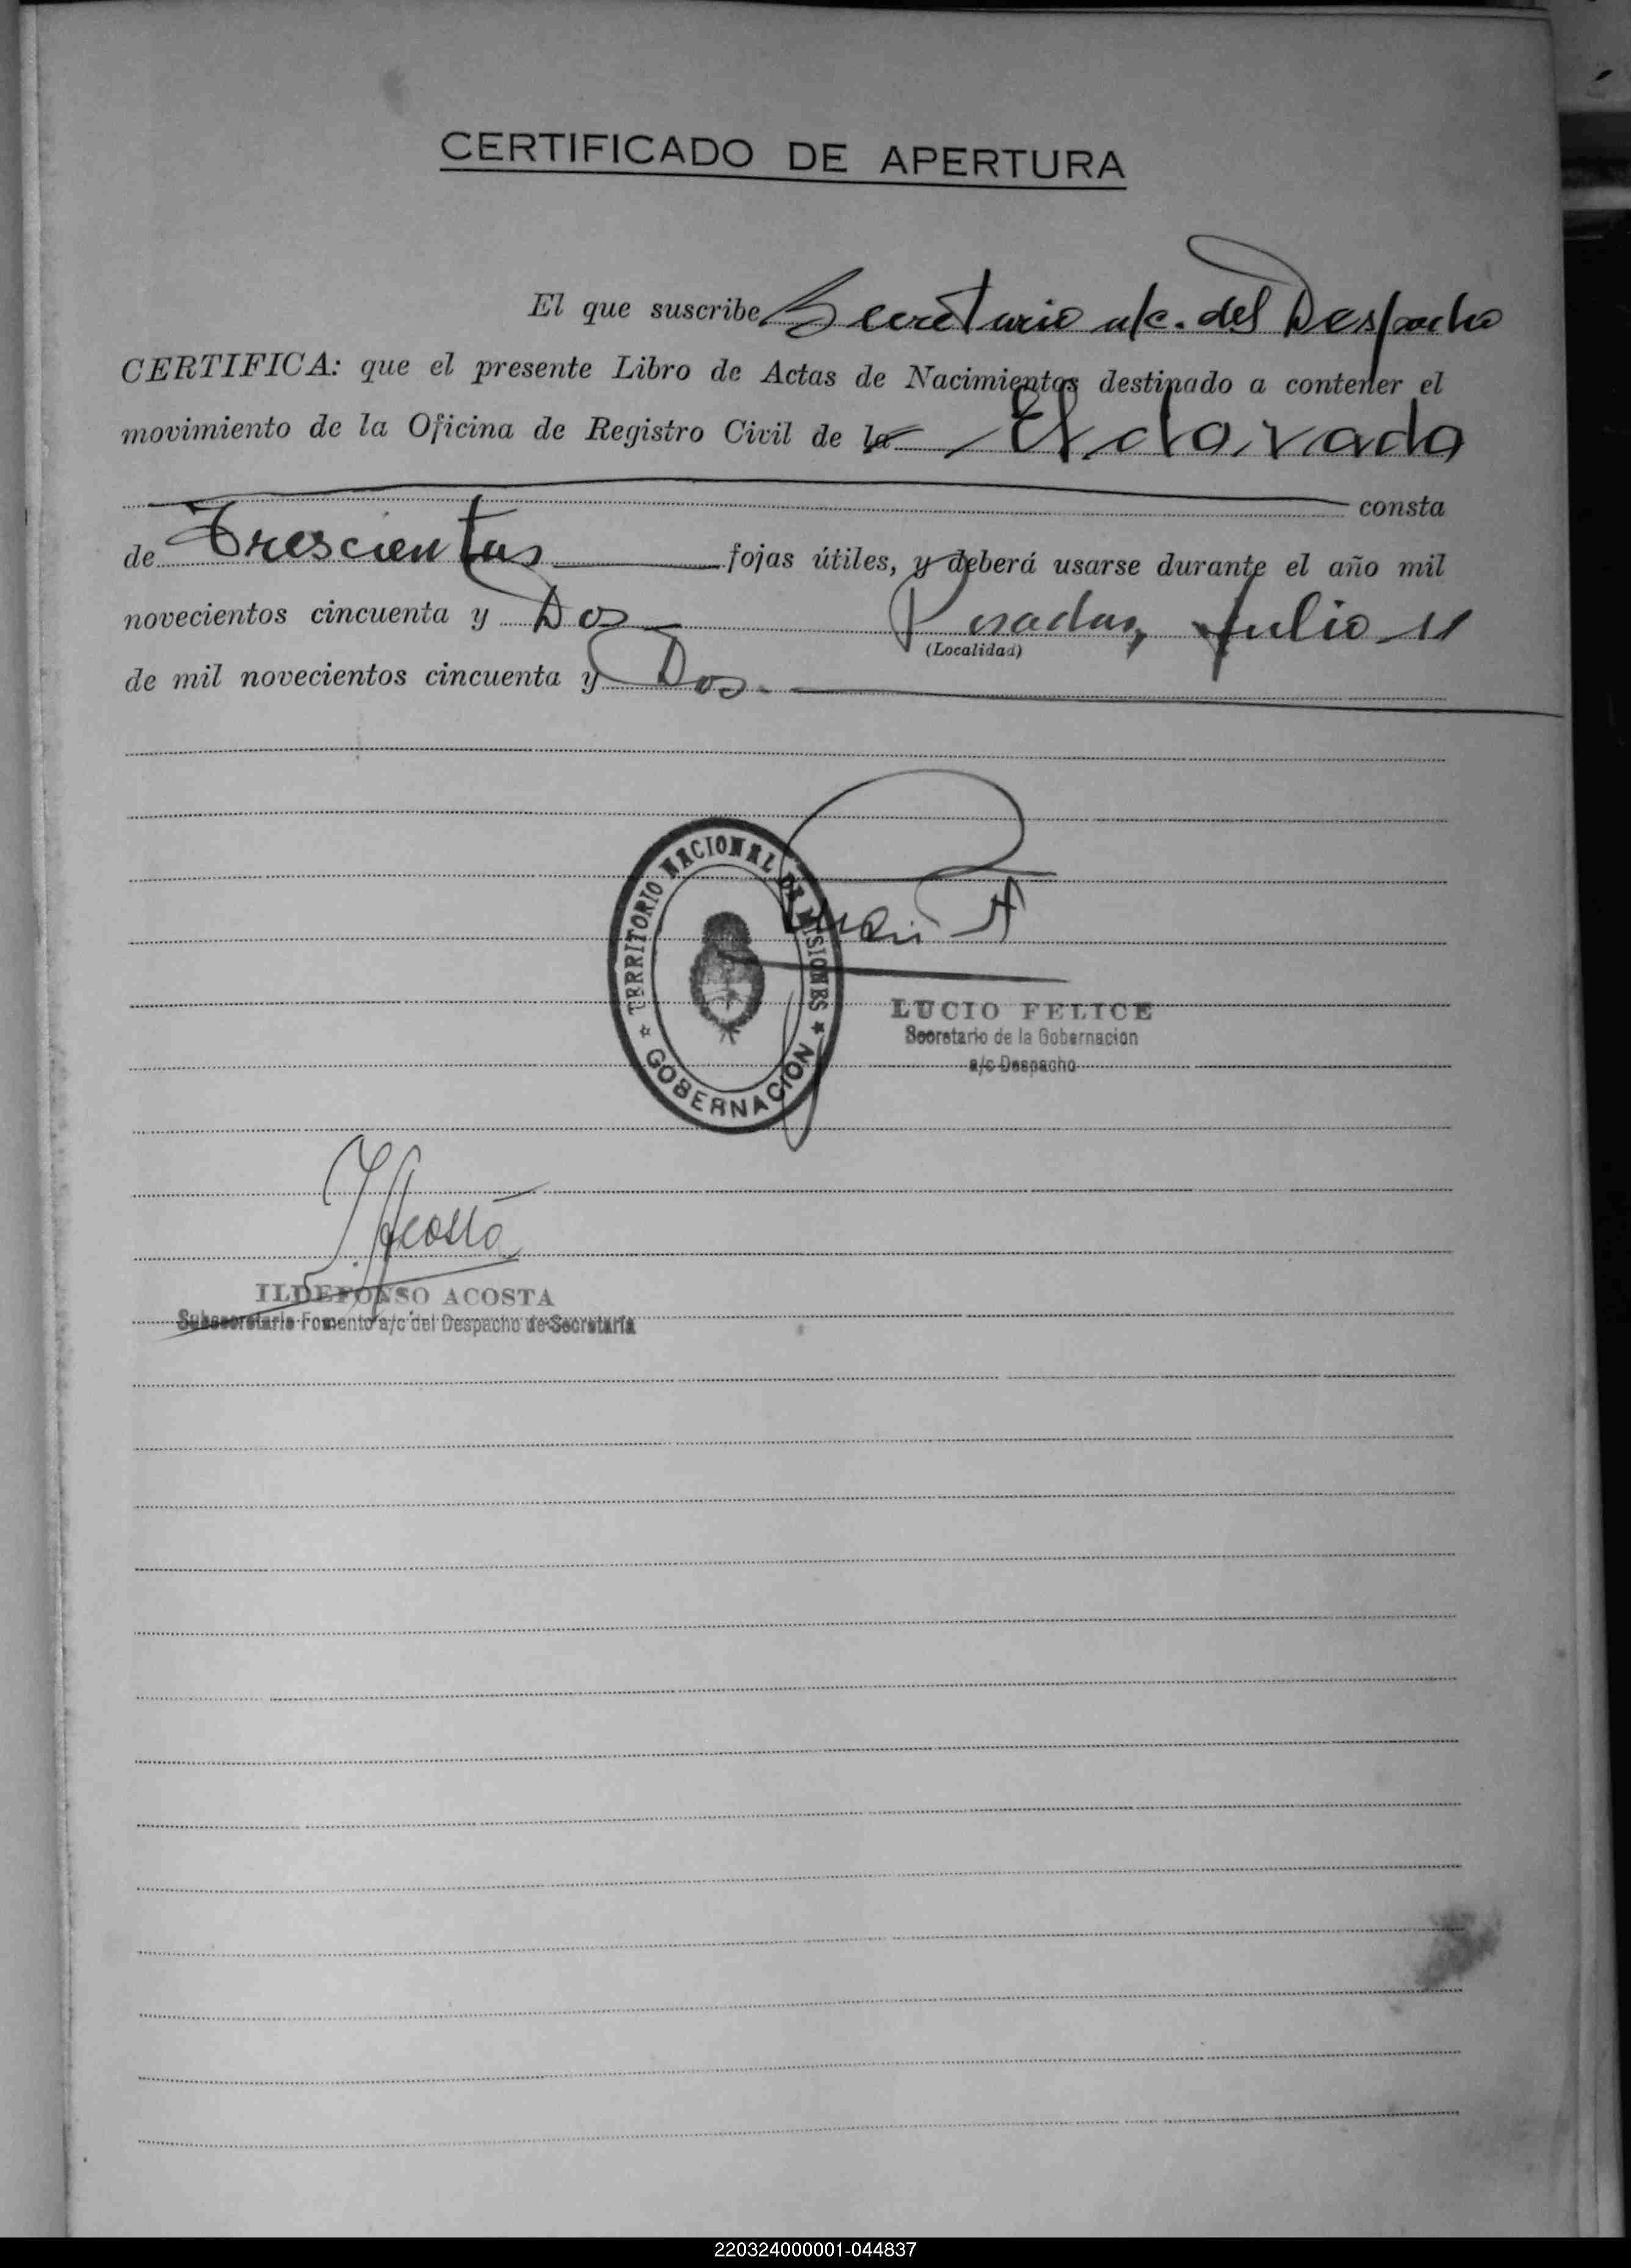 CERTIFICADO DE APERTURA
El que suscribe Secretario a/c. del Despacho
CERTIFICA: que el presente Libro de Actas de Nacimientos destinado a contener el
movimiento de la Oficina de Registro Civil de la Eldorado
consta
de Trescientas fojas útiles, y deberá usarse durante el año mil
novecientos cincuenta y Dos Posadas, Julio 11
(Localidad)
de mil novecientos cincuenta y Dos.
TERRITORIO NACIONAL DE MISIONES
GOBERNACION
LUCIO FELICE
Secretario de la Gobernacion
a/c Despacho
I. Acosta
ILDEFONSO ACOSTA
Subsecretario Fomento a/c del Despacho de Secretaría
220324000001-044837